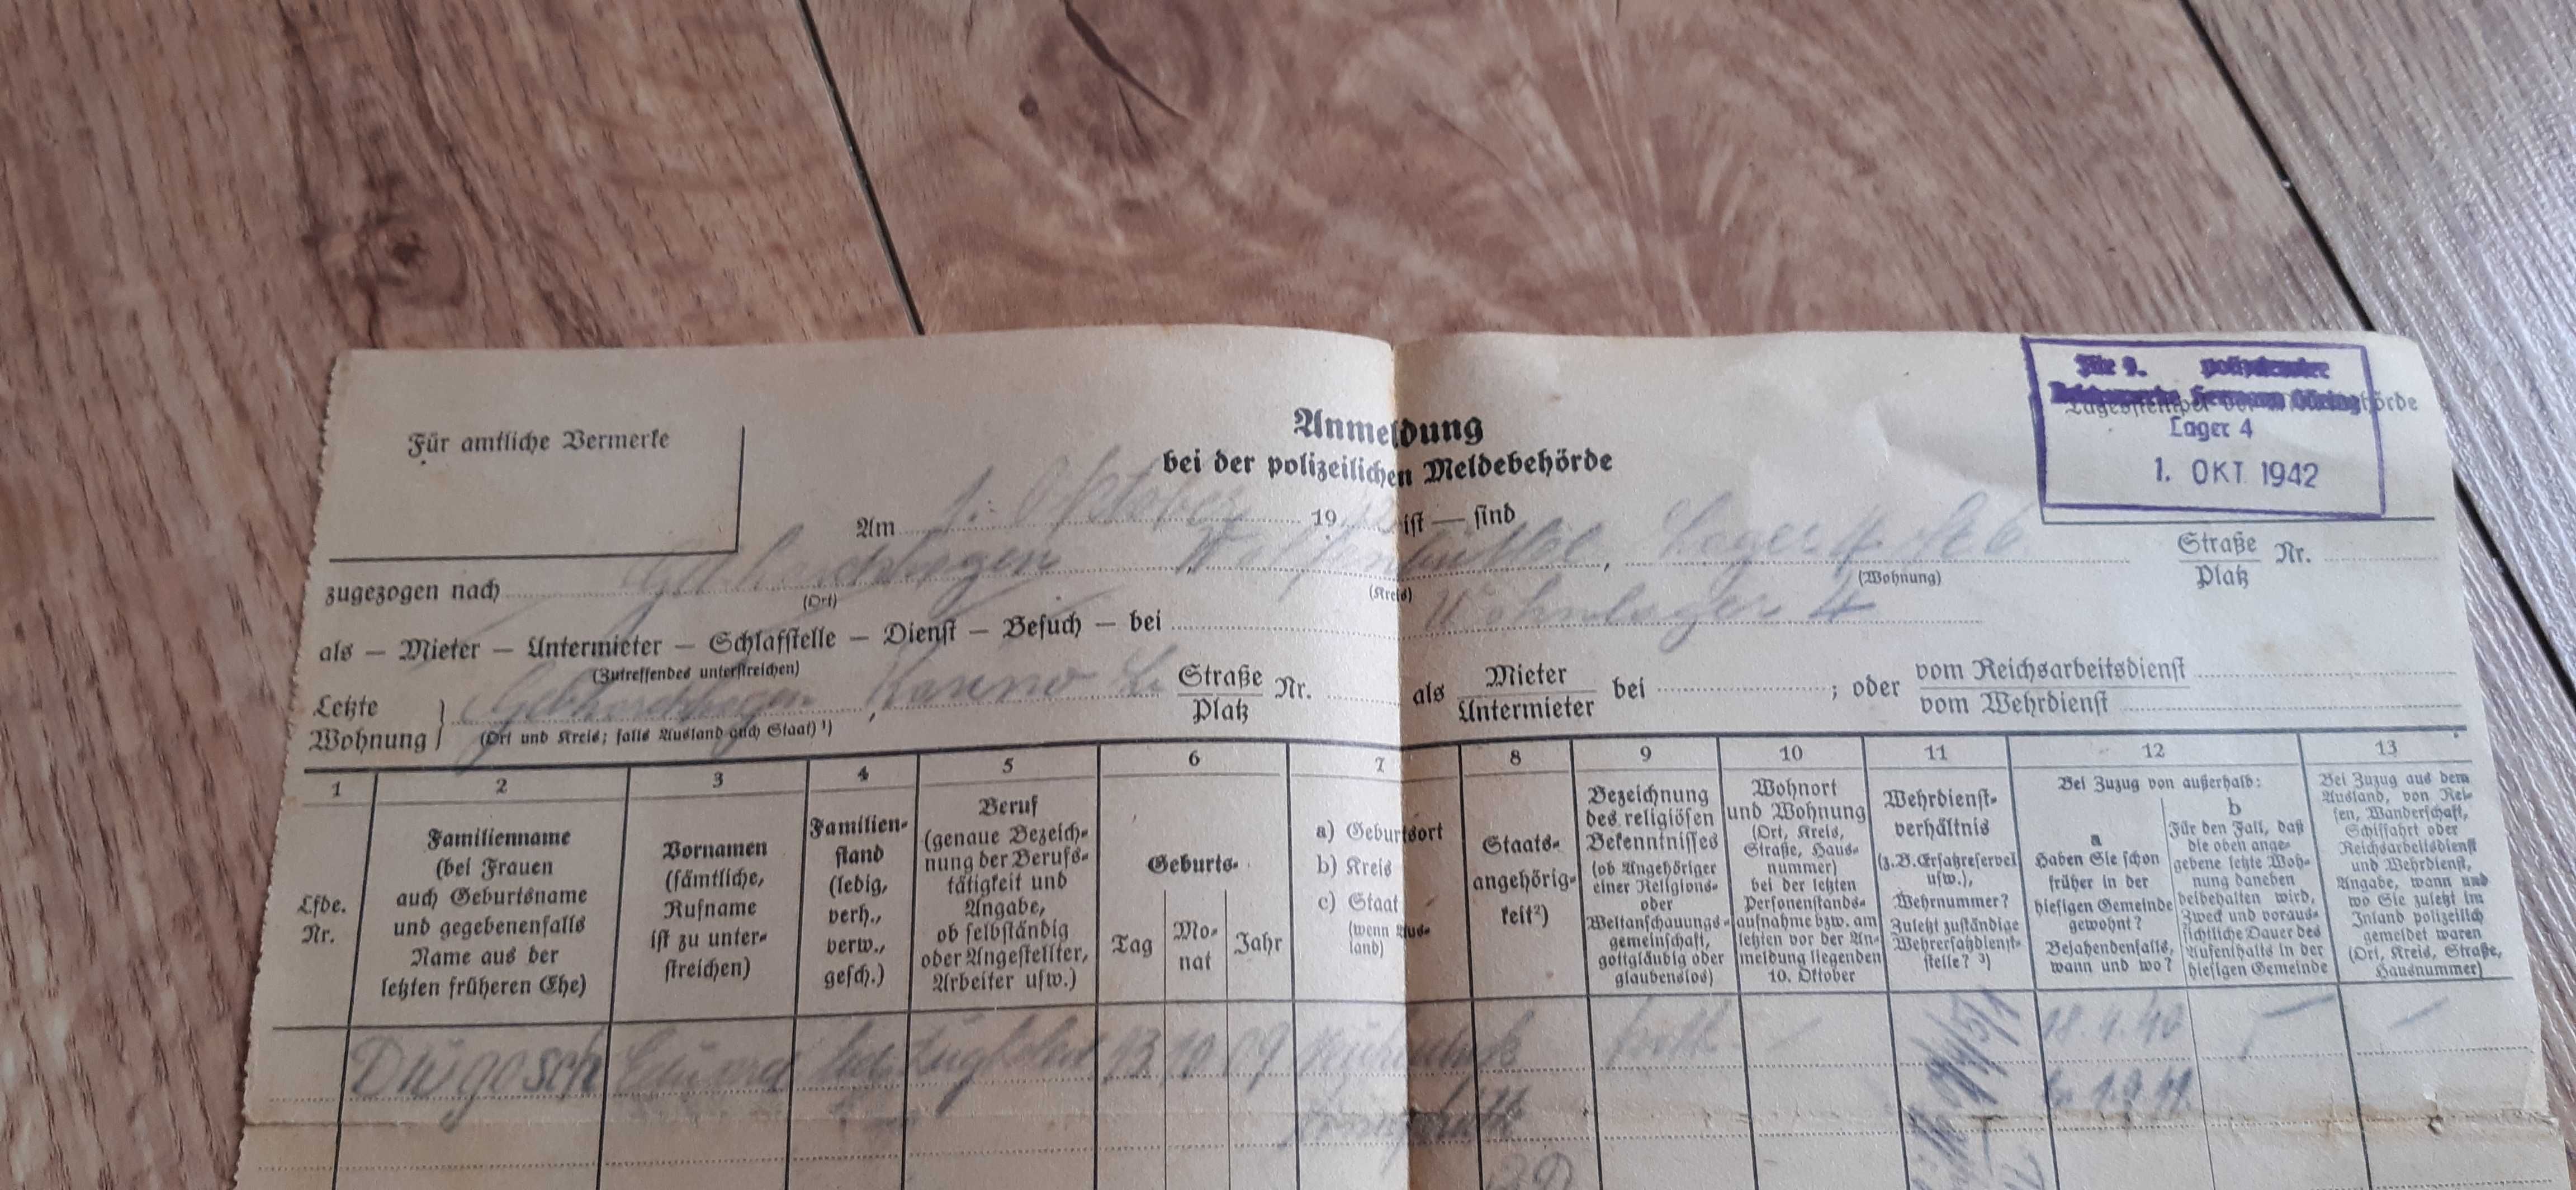 Für amtliche Vermerke
Anmeldung
bei der polizeilichen Meldebehörde
Für d. polizeiliche
Reichswerke Hermann Göring
Tagesstempel der Meldebehörde
Lager 4
1. OKT 1942
Am 1. Oktober 19 ist — sind
zugezogen nach Gebhardshagen Wolfenbüttel, Lager 4
(Ort) (Kreis) (Wohnung)
Straße
Platz Nr.
als — Mieter — Untermieter — Schlafstelle — Dienst — Besuch — bei Wohnlager 4
(Zutreffendes unterstreichen)
Letzte
Wohnung } Gebhardshagen, Straße
Platz Nr. als Mieter
Untermieter bei ; oder vom Reichsarbeitsdienst
vom Wehrdienst
(Ort und Kreis; falls Ausland auch Staat) ¹)
1 2 3 4 5 6 7 8 9 10 11 12 13
Lfde.
Nr.
Familienname
(bei Frauen
auch Geburtsname
und gegebenenfalls
Name aus der
letzten früheren Ehe)
Vornamen
(sämtliche,
Rufname
ist zu unter-
streichen)
Familien-
stand
(ledig,
verh.,
verw.,
gesch.)
Beruf
(genaue Bezeich-
nung der Berufs-
tätigkeit und
Angabe,
ob selbständig
oder Angestellter,
Arbeiter usw.)
Geburts-
Tag
Mo-
nat
Jahr
a) Geburtsort
b) Kreis
c) Staat
(wenn Aus-
land)
Staats-
angehörig-
keit²)
Bezeichnung
des religiösen
Bekenntnisses
(ob Angehöriger
einer Religions-
oder
Weltanschauungs-
gemeinschaft,
gottgläubig oder
glaubenslos)
Wohnort
und Wohnung
(Ort, Kreis,
Straße, Haus-
nummer)
bei der letzten
Personenstands-
aufnahme bzw. am
letzten vor der An-
meldung liegenden
10. Oktober
Wehrdienst-
verhältnis
(z.B. Ersatzreserve I
usw.),
Wehrnummer?
Zuletzt zuständige
Wehrersatzdienst-
stelle? ³)
Bei Zuzug von außerhalb:
a
Haben Sie schon
früher in der
hiesigen Gemeinde
gewohnt?
Bejahendenfalls,
wann und wo?
b
Für den Fall, daß
die oben ange-
gebene letzte Woh-
nung daneben
beibehalten wird,
Zweck und voraus-
sichtliche Dauer des
Aufenthalts in der
hiesigen Gemeinde
Bei Zuzug aus dem
Ausland, von Rei-
sen, Wanderschaft,
Schiffahrt oder
Reichsarbeitsdienst
und Wehrdienst,
Angabe, wann und
wo Sie zuletzt im
Inland polizeilich
gemeldet waren
(Ort, Kreis, Straße,
Hausnummer)
13 10 09 kath. 18.4.40